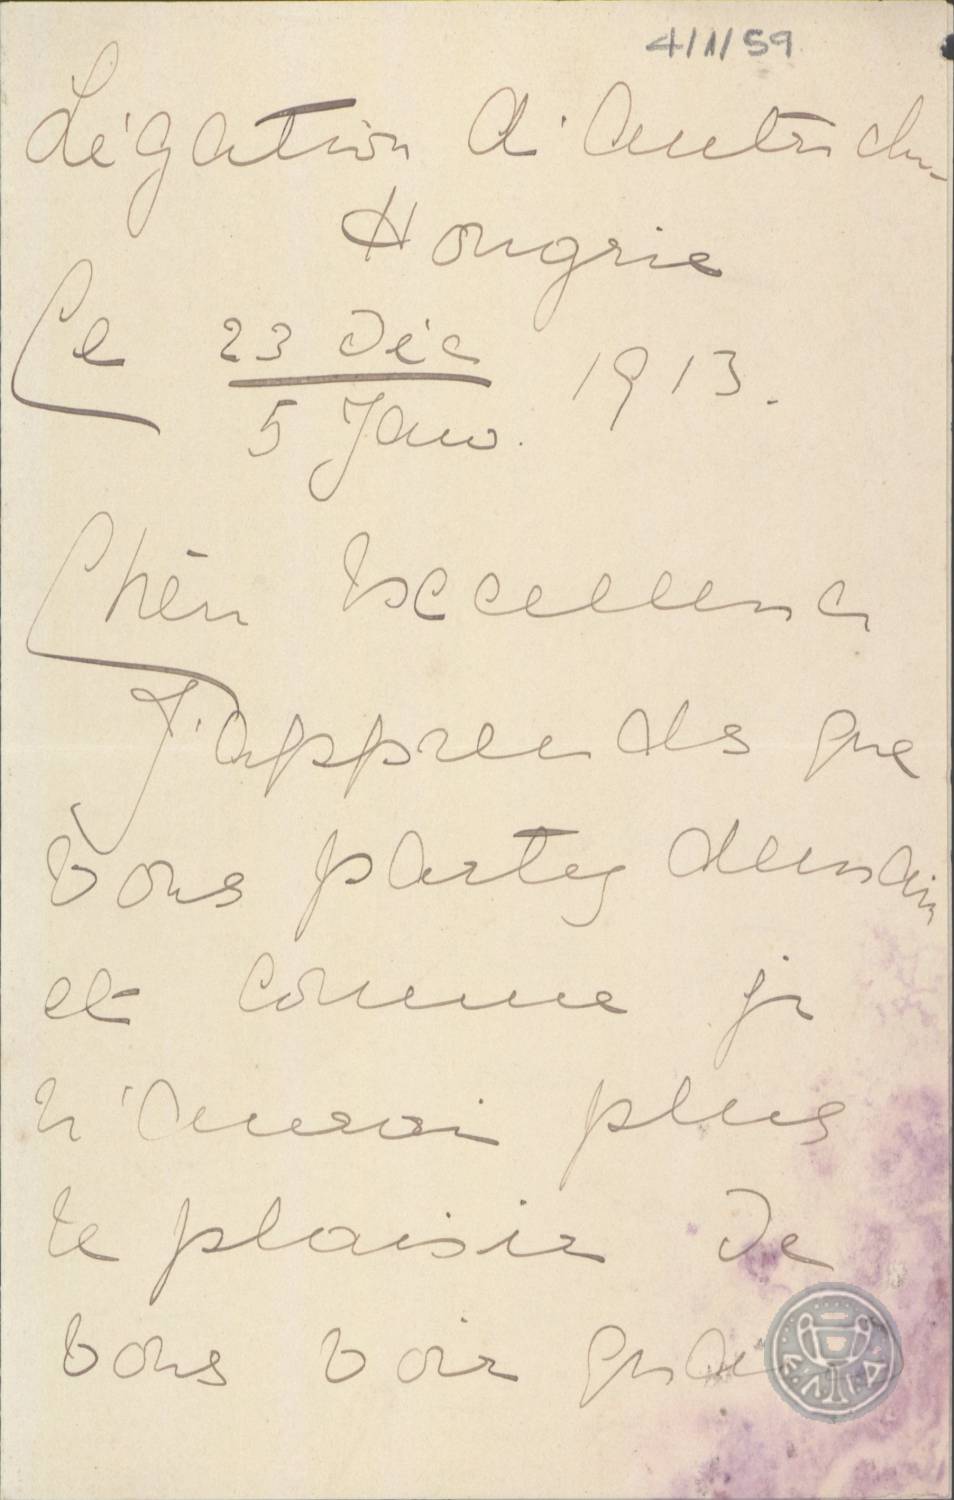 4/1/59
Légation d'Autriche-
Hongrie
Ce 23 Déc
5 Janv. 1913.
Chère Excellence
J'apprends que
vous partez demain
et comme je
n'aurai plus
le plaisir de
vous voir
Ε.Λ.Ι.Α